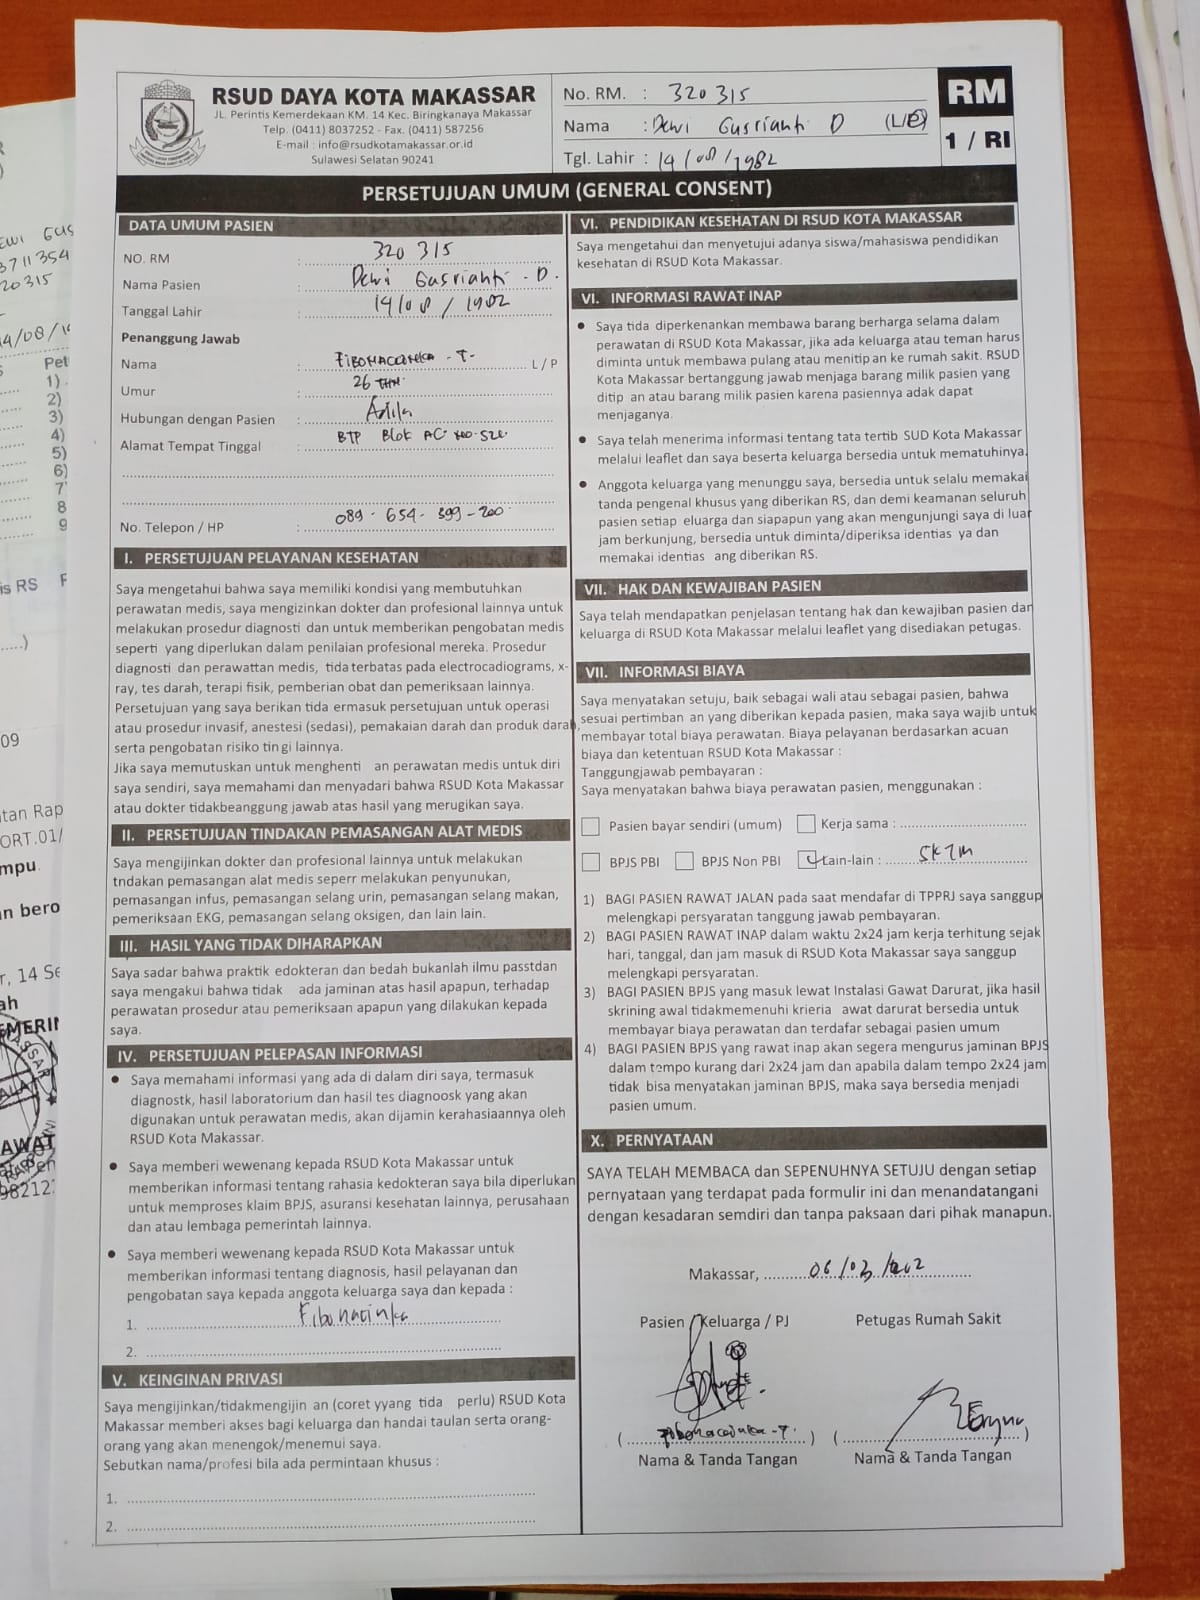 RSUD DAYA KOTA MAKASSAR
JL. Perintis Kemerdekaan KM. 14 Kec. Biringkanaya Makassar
Telp. (0411) 8037252 - Fax. (0411) 587256
E-mail : info@rsudkotamakassar.or.id
Sulawesi Selatan 90241
No. RM. : 320315
Nama : Dewi Gusrianti D (L/P)
Tgl. Lahir : 14/08/1982
RM
1 / RI
PERSETUJUAN UMUM (GENERAL CONSENT)
DATA UMUM PASIEN
NO. RM : 320315
Nama Pasien : Dewi Gusrianti . D.
Tanggal Lahir : 14/08/1982
Penanggung Jawab
Nama : L / P
Umur : 26 THN
Hubungan dengan Pasien :
Alamat Tempat Tinggal : BTP Blok AC
No. Telepon / HP : 089 - 654 - 399 - 200
I. PERSETUJUAN PELAYANAN KESEHATAN
Saya mengetahui bahwa saya memiliki kondisi yang membutuhkan
perawatan medis, saya mengizinkan dokter dan profesional lainnya untuk
melakukan prosedur diagnosti dan untuk memberikan pengobatan medis
seperti yang diperlukan dalam penilaian profesional mereka. Prosedur
diagnosti dan perawattan medis, tida terbatas pada electrocadiograms, x-
ray, tes darah, terapi fisik, pemberian obat dan pemeriksaan lainnya.
Persetujuan yang saya berikan tida ermasuk persetujuan untuk operasi
atau prosedur invasif, anestesi (sedasi), pemakaian darah dan produk darah,
serta pengobatan risiko tin gi lainnya.
Jika saya memutuskan untuk menghenti an perawatan medis untuk diri
saya sendiri, saya memahami dan menyadari bahwa RSUD Kota Makassar
atau dokter tidakbeanggung jawab atas hasil yang merugikan saya.
II. PERSETUJUAN TINDAKAN PEMASANGAN ALAT MEDIS
Saya mengijinkan dokter dan profesional lainnya untuk melakukan
tndakan pemasangan alat medis seperr melakukan penyunukan,
pemasangan infus, pemasangan selang urin, pemasangan selang makan,
pemeriksaan EKG, pemasangan selang oksigen, dan lain lain.
III. HASIL YANG TIDAK DIHARAPKAN
Saya sadar bahwa praktik edokteran dan bedah bukanlah ilmu passtdan
saya mengakui bahwa tidak ada jaminan atas hasil apapun, terhadap
perawatan prosedur atau pemeriksaan apapun yang dilakukan kepada
saya.
IV. PERSETUJUAN PELEPASAN INFORMASI
• Saya memahami informasi yang ada di dalam diri saya, termasuk
diagnostk, hasil laboratorium dan hasil tes diagnoosk yang akan
digunakan untuk perawatan medis, akan dijamin kerahasiaannya oleh
RSUD Kota Makassar.
• Saya memberi wewenang kepada RSUD Kota Makassar untuk
memberikan informasi tentang rahasia kedokteran saya bila diperlukan
untuk memproses klaim BPJS, asuransi kesehatan lainnya, perusahaan
dan atau lembaga pemerintah lainnya.
• Saya memberi wewenang kepada RSUD Kota Makassar untuk
memberikan informasi tentang diagnosis, hasil pelayanan dan
pengobatan saya kepada anggota keluarga saya dan kepada :
1.
2.
V. KEINGINAN PRIVASI
Saya mengijinkan/tidakmengijin an (coret yyang tida perlu) RSUD Kota
Makassar memberi akses bagi keluarga dan handai taulan serta orang-
orang yang akan menengok/menemui saya.
Sebutkan nama/profesi bila ada permintaan khusus :
1.
2.
VI. PENDIDIKAN KESEHATAN DI RSUD KOTA MAKASSAR
Saya mengetahui dan menyetujui adanya siswa/mahasiswa pendidikan
kesehatan di RSUD Kota Makassar.
VI. INFORMASI RAWAT INAP
• Saya tida diperkenankan membawa barang berharga selama dalam
perawatan di RSUD Kota Makassar, jika ada keluarga atau teman harus
diminta untuk membawa pulang atau menitip an ke rumah sakit. RSUD
Kota Makassar bertanggung jawab menjaga barang milik pasien yang
ditip an atau barang milik pasien karena pasiennya adak dapat
menjaganya.
• Saya telah menerima informasi tentang tata tertib SUD Kota Makassar
melalui leaflet dan saya beserta keluarga bersedia untuk mematuhinya.
• Anggota keluarga yang menunggu saya, bersedia untuk selalu memakai
tanda pengenal khusus yang diberikan RS, dan demi keamanan seluruh
pasien setiap eluarga dan siapapun yang akan mengunjungi saya di luar
jam berkunjung, bersedia untuk diminta/diperiksa identias ya dan
memakai identias ang diberikan RS.
VII. HAK DAN KEWAJIBAN PASIEN
Saya telah mendapatkan penjelasan tentang hak dan kewajiban pasien dar
keluarga di RSUD Kota Makassar melalui leaflet yang disediakan petugas.
VII. INFORMASI BIAYA
Saya menyatakan setuju, baik sebagai wali atau sebagai pasien, bahwa
sesuai pertimban an yang diberikan kepada pasien, maka saya wajib untuk
membayar total biaya perawatan. Biaya pelayanan berdasarkan acuan
biaya dan ketentuan RSUD Kota Makassar :
Tanggungjawab pembayaran :
Saya menyatakan bahwa biaya perawatan pasien, menggunakan :
Pasien bayar sendiri (umum) Kerja sama :
BPJS PBI BPJS Non PBI Lain-lain : SKTM
1) BAGI PASIEN RAWAT JALAN pada saat mendafar di TPPRJ saya sanggup
melengkapi persyaratan tanggung jawab pembayaran.
2) BAGI PASIEN RAWAT INAP dalam waktu 2x24 jam kerja terhitung sejak
hari, tanggal, dan jam masuk di RSUD Kota Makassar saya sanggup
melengkapi persyaratan.
3) BAGI PASIEN BPJS yang masuk lewat Instalasi Gawat Darurat, jika hasil
skrining awal tidakmemenuhi krieria awat darurat bersedia untuk
membayar biaya perawatan dan terdafar sebagai pasien umum
4) BAGI PASIEN BPJS yang rawat inap akan segera mengurus jaminan BPJS
dalam tempo kurang dari 2x24 jam dan apabila dalam tempo 2x24 jam
tidak bisa menyatakan jaminan BPJS, maka saya bersedia menjadi
pasien umum.
X. PERNYATAAN
SAYA TELAH MEMBACA dan SEPENUHNYA SETUJU dengan setiap
pernyataan yang terdapat pada formulir ini dan menandatangani
dengan kesadaran semdiri dan tanpa paksaan dari pihak manapun.
Makassar, 06/03/
Pasien / Keluarga / PJ Petugas Rumah Sakit
Nama & Tanda Tangan Nama & Tanda Tangan